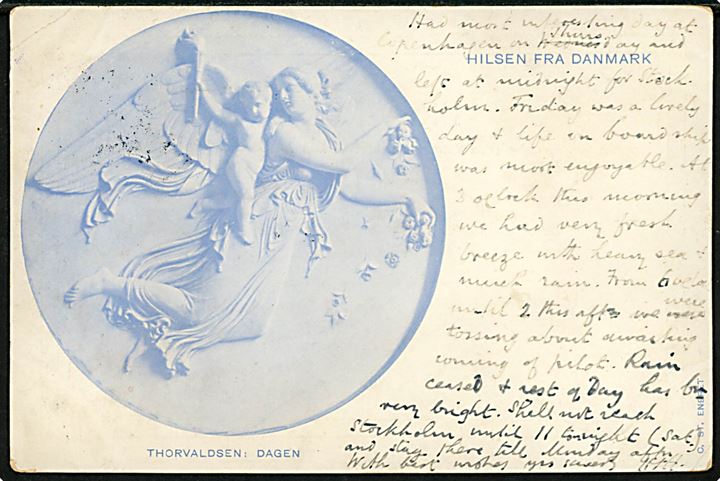 Had most interesting day at
Copenhagen on Thursday and
HILSEN FRA DANMARK
left at midnight for Stock
holm. Friday was a lovely
day & life on board ship
was most enjoyable. At
3 oclock this morning
we had very fresh
breeze with heavy sea &
much rain. From 6 oclo
until 2 this aftn we were
tossing about awaiting
coming of pilot. Rain
ceased & rest of Day has bn
very bright. Shall not reach
Stockholm until 11 tonight (Sat)
and stay there till Monday aftn.
With best wishes yrs
THORVALDSEN: DAGEN
C. ST. ENERET